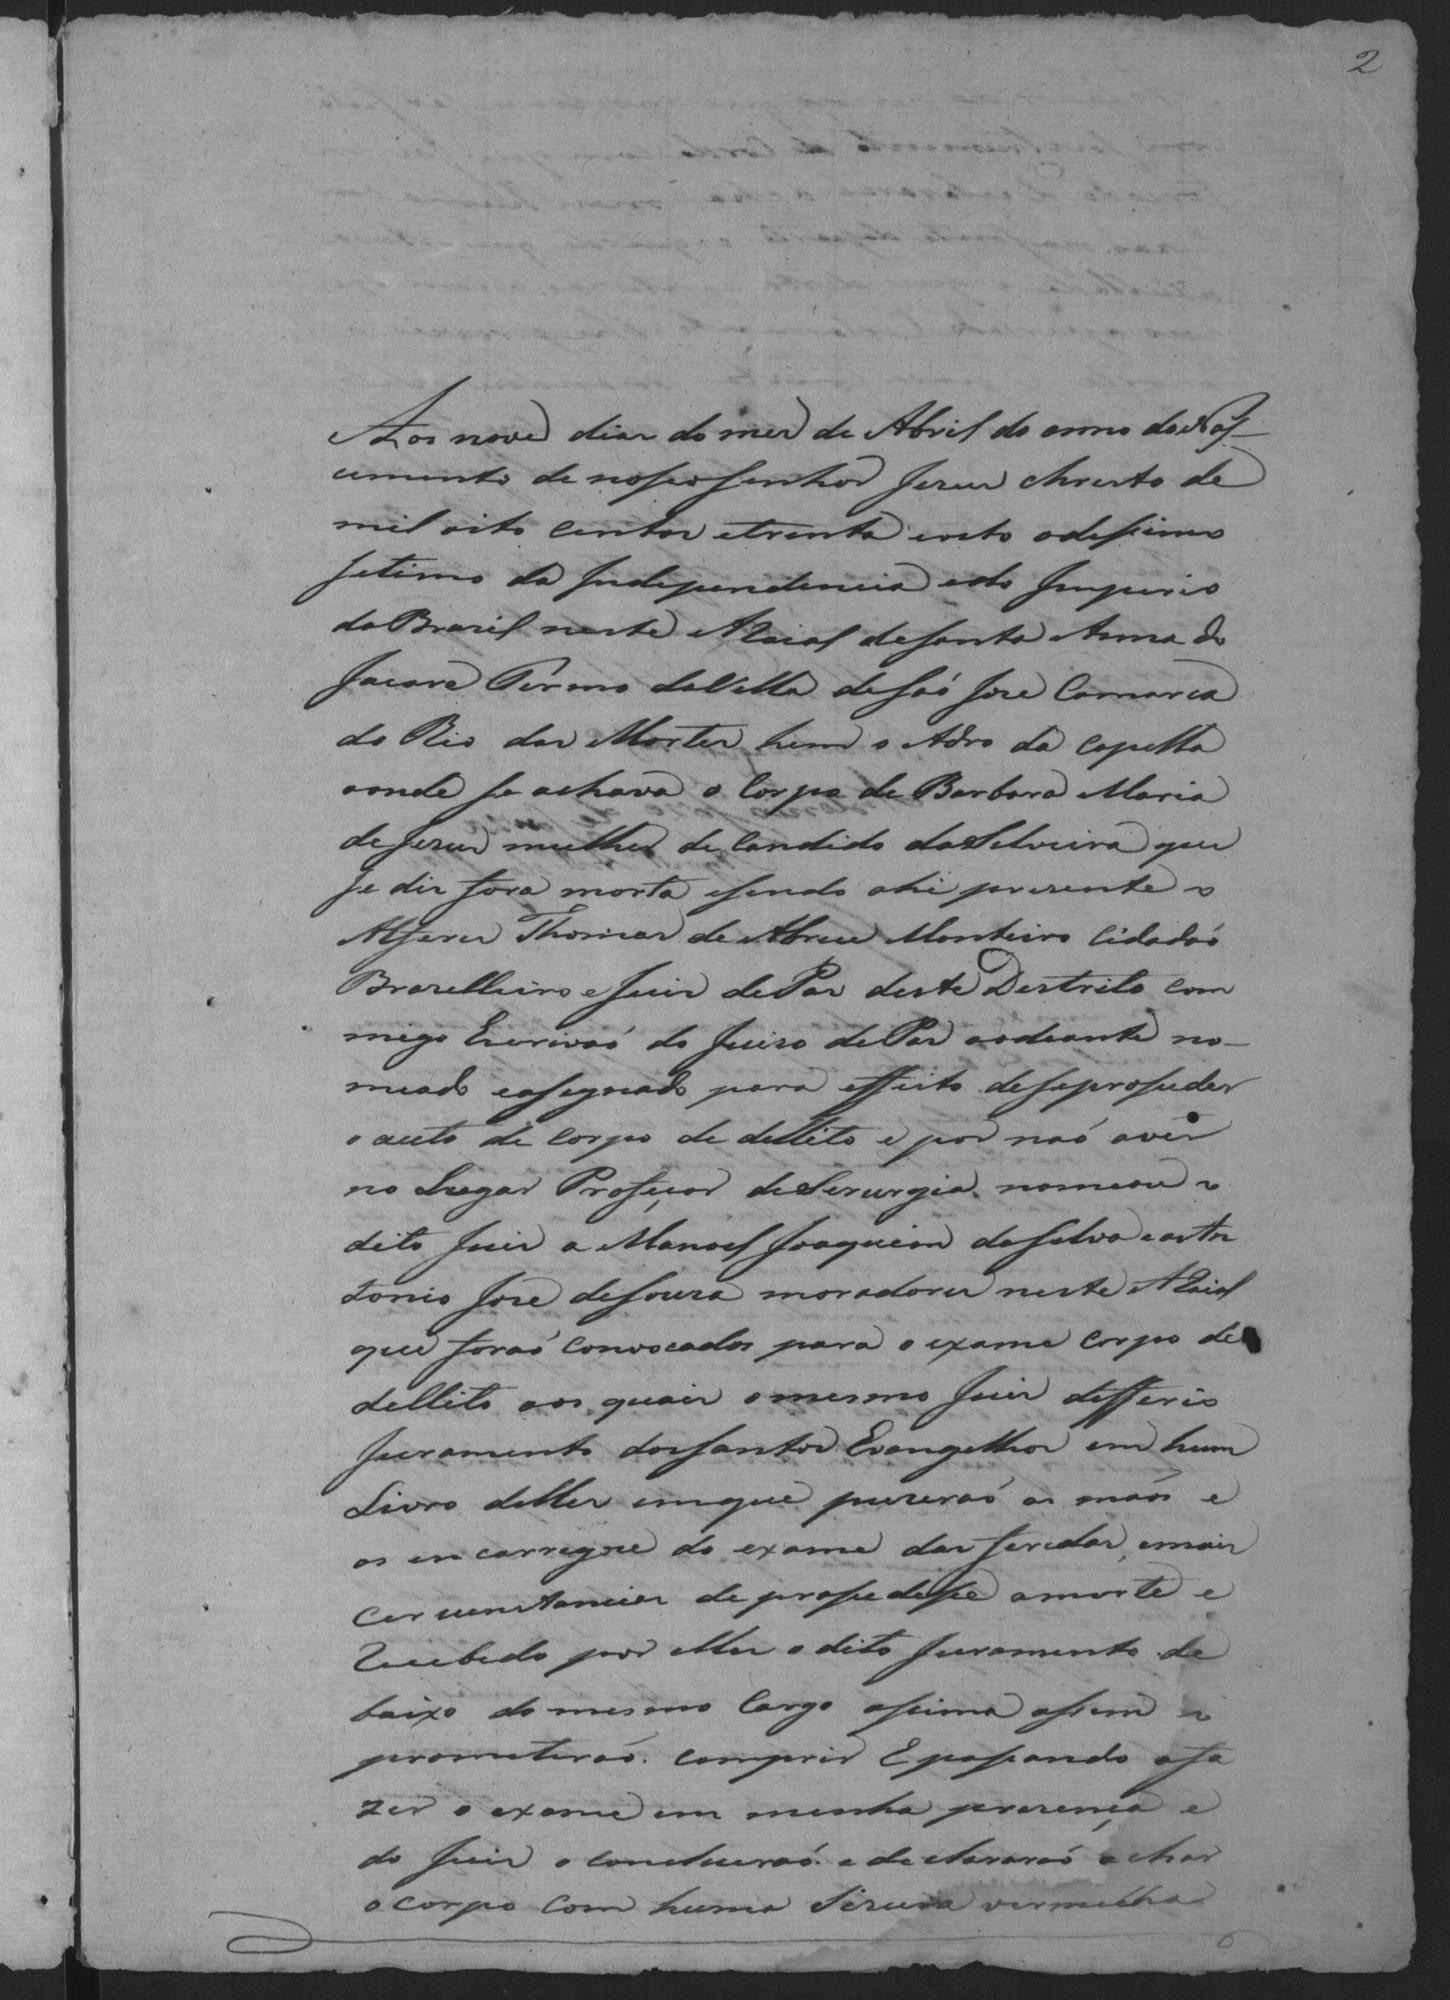 2
Aos nove dias do mes de Abril do anno do Nas-
cimento de nosso senhor Jesus Christo de
mil oito centos etrenta eoito odessimo
setimo da Independencia edo Imperio
do Brasil neste ARaial desanta Anna do
Jacare Termo daVilla desaó José Comarca
do Rio das Mortes hem o Adro da Capella
aonde se achava o Corpo de Barbara Maria
de Jesus mulher de Candido daSilveira que
se dis fora morta esendo ahi presente o
Alferes Thomas de Abreu Monteiro Cidadaó
Brazelleiro e Juis dePas deste Destrito com
migo Escrivaó do Juiso dePas aodeante no-
meado easignado para effeito deseproseder
o auto de Corpo de dellito e por naó aver
no Lugar Professor deSirurgia nomeou o
dito Juis a Manoel Joaquim daSilva eaAn
tonio José deSousa moradores neste ARaial
que foraó Convocados para o exame Corpo de
dellito aos quais omesmo Juis defferio
Juramento dosSantos Evangelhos em hum
Livro delles emque puseraó as maós e
os encarregou do exame das feridas, emais
Cercunstancias de prosedesse amorte e
Recebido por elles odito Juramento de
baixo do mesmo Cargo assima assim o
prometeraó. Comprir E passando afa
zer o exame em minha presença e
do Juis o Concluiraó. e declararaó achar
o Corpo Com huma Sirura vermelha